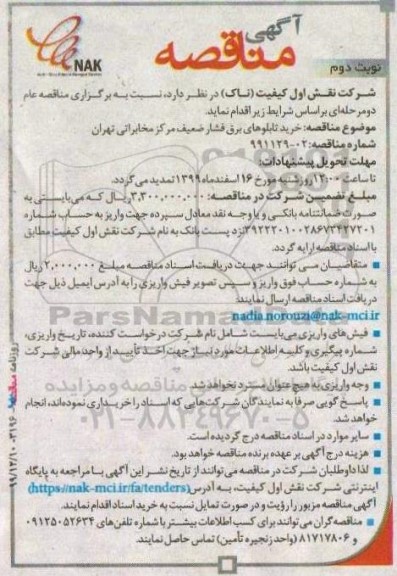 آگهی
مناقصه
NAK
نوبت دوم
شرکت نقش اول کیفیت (ناک) در نظر دارد، نسبت به برگزاری مناقصه عام
دومرحله‌ای براساس شرایط زیر اقدام نماید.
موضوع مناقصه: خرید تابلوهای برق فشار ضعیف مرکز مخابراتی تهران
شماره مناقصه: ۰۲-۹۹۱۱۲۹
مهلت تحویل پیشنهادات:
تا ساعت ۱۲:۰۰ روز شنبه مورخ ۱۶ اسفندماه ۱۳۹۹ تمدید می‌گردد.
مبلغ تضمین شرکت در مناقصه: ۳,۳۰۰,۰۰۰,۰۰۰ ریال که می‌بایستی به
صورت ضمانتنامه بانکی و یا وجه نقد معادل سپرده جهت واریز به حساب شماره
نزد پست بانک به نام شرکت نقش اول کیفیت مطابق
با اسناد مناقصه ارایه گردد.
■ متقاضیان می توانند جهت دریافت اسناد مناقصه مبلغ ۲,۰۰۰,۰۰۰ ریال
به شماره حساب فوق واریز و سپس تصویر فیش واریزی را به آدرس ایمیل ذیل جهت
دریافت اسناد مناقصه ارسال نمایند:
nadia.norouzi@nak-mci.ir
■ فیش های واریزی می‌بایست شامل نام شرکت درخواست کننده، تاریخ واریزی،
شماره پیگیری و کلیه اطلاعات مورد نیاز جهت اخذ تأیید از واحد مالی شرکت
نقش اول کیفیت باشد.
■ وجه واریزی به هیچ عنوان مسترد نخواهد شد.
■ پاسخ گویی صرفا به نمایندگان شرکت‌هایی که اسناد را خریداری نموده‌اند، انجام
خواهد شد.
■ سایر موارد در اسناد مناقصه درج گردیده است.
■ هزینه درج آگهی بر عهده برنده مناقصه خواهد بود.
■ لذا داوطلبان شرکت در مناقصه می‌توانند از تاریخ نشر این آگهی با مراجعه به پایگاه
اینترنتی شرکت نقش اول کیفیت، به آدرس (https://nak-mci.ir/fa/tenders)
آگهی مناقصه مزبور را رؤیت و در صورت تمایل نسبت به خرید اسناد اقدام نمایند.
■ مناقصه گران می‌توانند برای کسب اطلاعات بیشتر با شماره تلفن های ۰۹۱۲۵۰۵۲۶۳۴
و ۸۱۷۱۷۸۰۶ (واحد زنجیره تأمین) تماس حاصل نمایند.
روزنامه مناقصه ۹۹/۱۲/۱۰-۳۱۹۶
ParsNamadData
۰۲۱-۸۸۳۴۹۶۷۰-۵